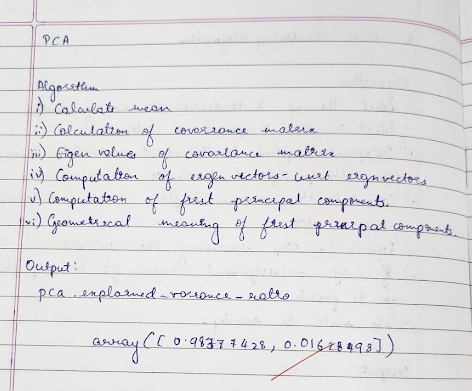 PCA
Algorithm
i) Calculate mean
ii) Calculation of covariance matrix
iii) Eigen values of covariance matrix
iv) Computation of eigen vectors - unit eigenvectors
v) Computation of first principal components.
vi) Geometrical meaning of first principal components.
Output:
pca.explained_variance_ratio
array([0.98377428, 0.01628498])